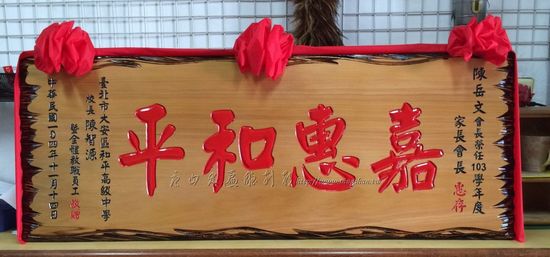 陳岳文會長榮任103學年度
家長會長 惠存
嘉惠和平
臺北市大安區和平高級中學
校長 陳智源
暨全體教職員工 敬贈
中華民國一〇四年十一月十四日